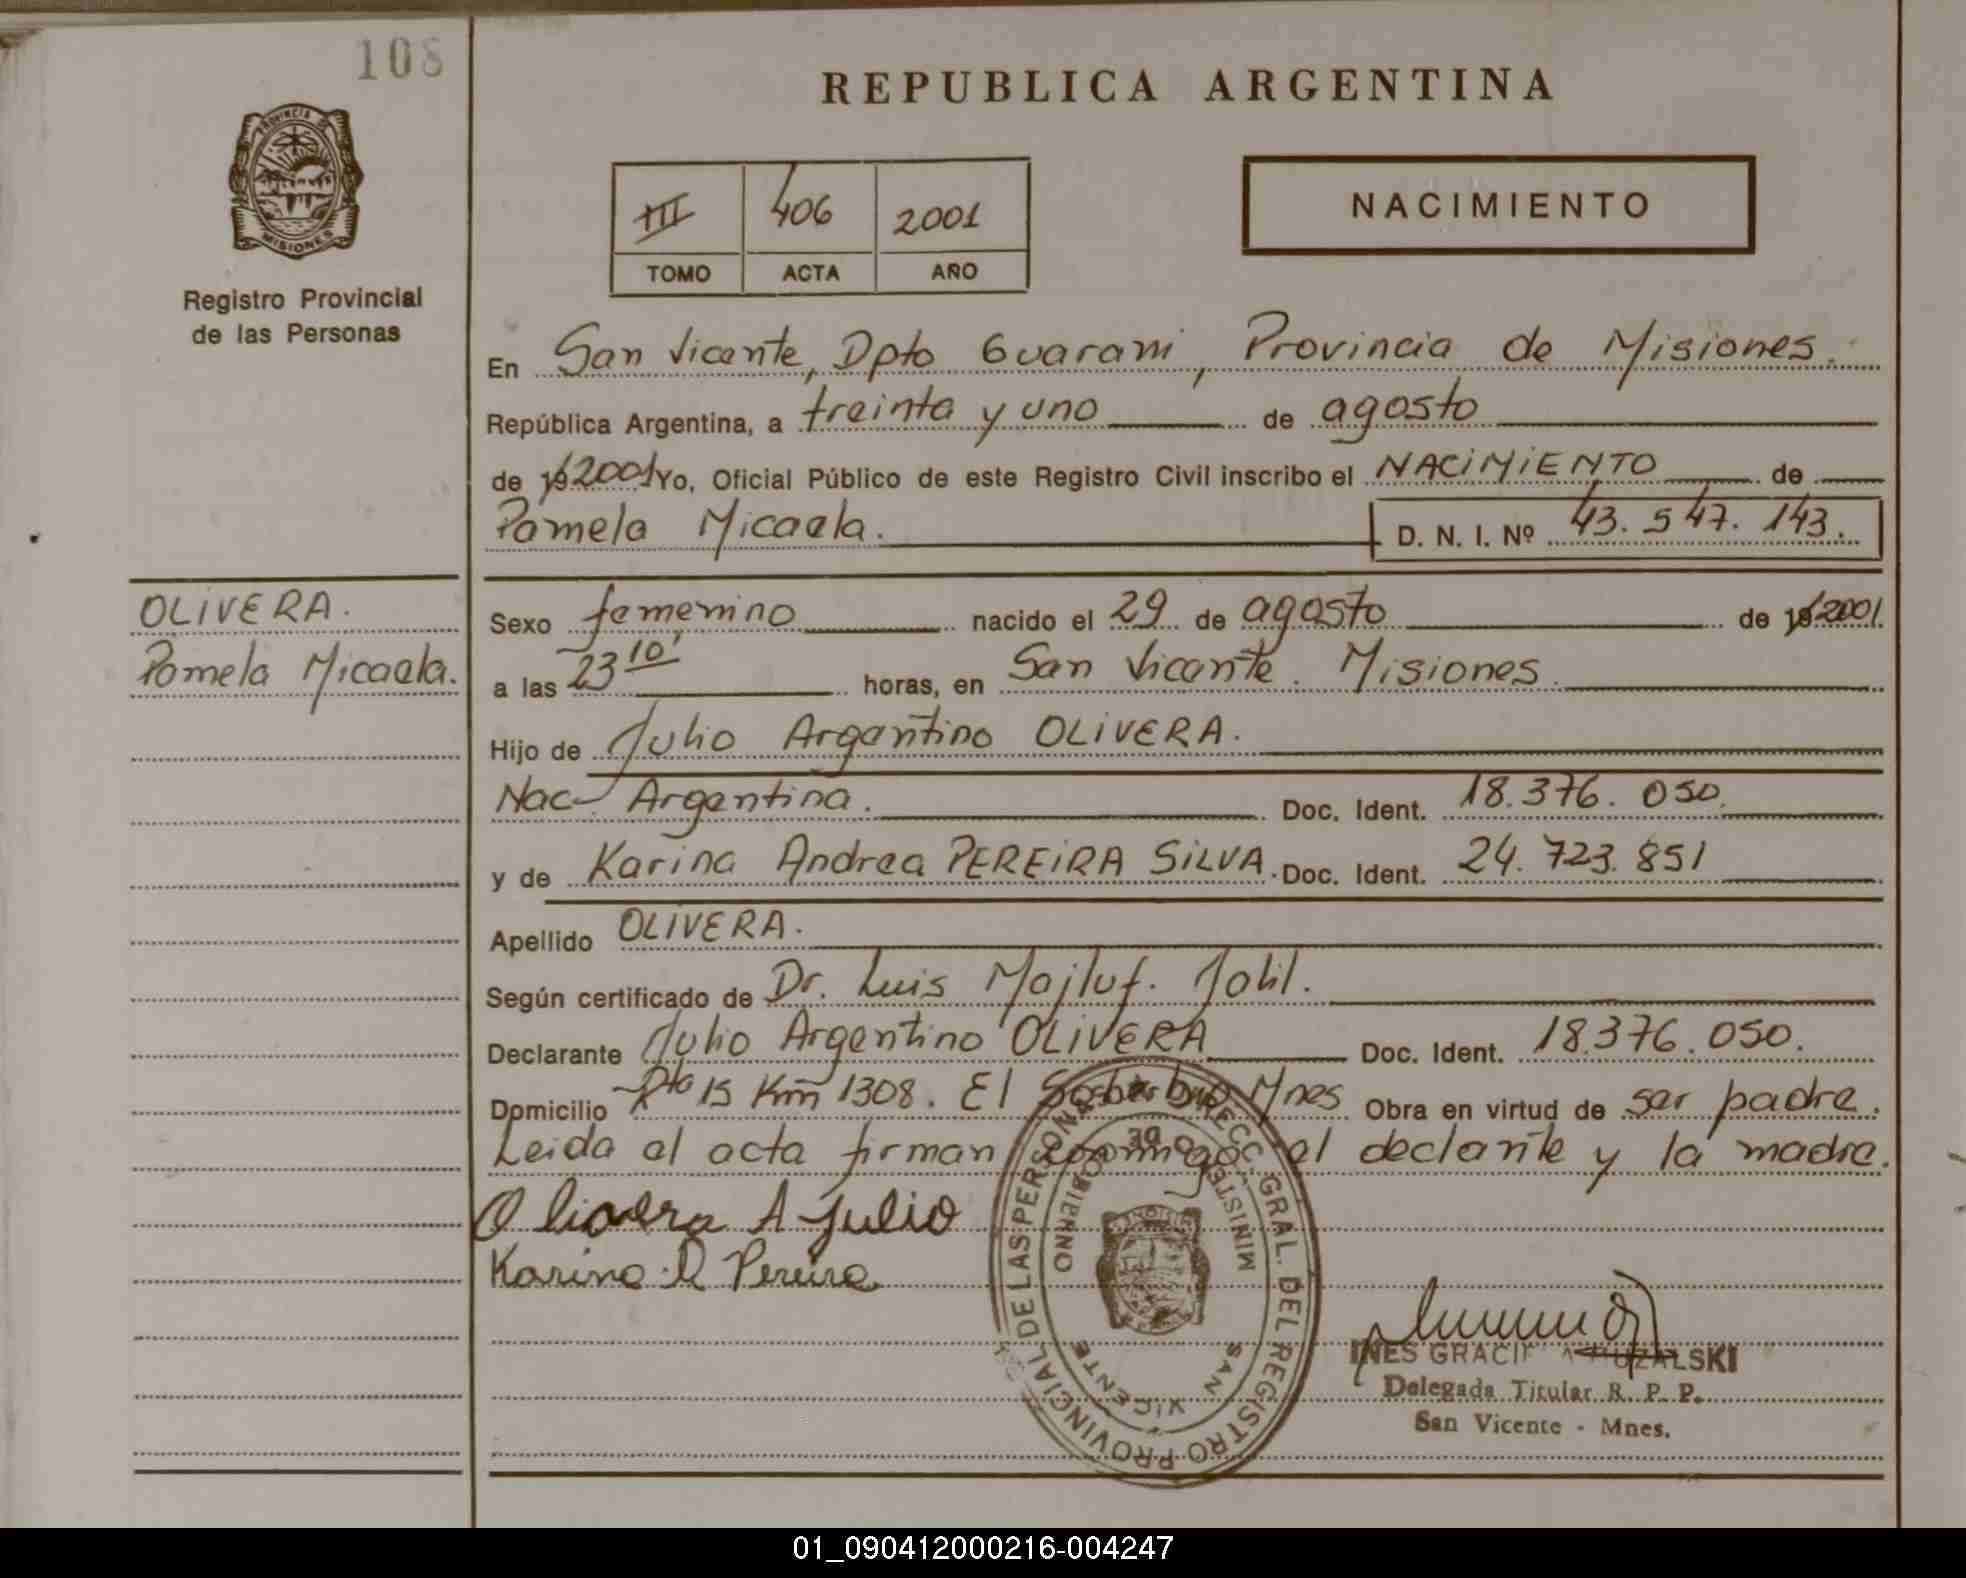 108
REPUBLICA ARGENTINA
PROVINCIA DE
MISIONES
Registro Provincial
de las Personas
III 406 2001
TOMO ACTA AÑO
NACIMIENTO
En San Vicente, Dpto Guarani, Provincia de Misiones.
República Argentina, a treinta y uno de agosto
de 19 2001 Yo, Oficial Público de este Registro Civil inscribo el NACIMIENTO de
Pamela Micaela. D. N. I. Nº 43.547.143.
OLIVERA.
Pamela Micaela.
Sexo femenino nacido el 29 de agosto de 19 2001.
a las 23 10' horas, en San Vicente. Misiones.
Hijo de Julio Argentino OLIVERA.
Nac- Argentina. Doc. Ident. 18.376.050.
y de Karina Andrea PEREIRA SILVA. Doc. Ident. 24.723.851
Apellido OLIVERA.
Según certificado de Dr. Luis Mojluf.
Declarante Julio Argentino OLIVERA Doc. Ident. 18.376.050.
Domicilio Rta 15 Km 1308. El Soberbio Mnes Obra en virtud de ser padre.
Leida el acta firman conmigo el declante y la madre.
Olivera A Julio
Karina A Pereira
DIRECC. GRAL. DEL REGISTRO PROVINCIAL DE LAS PERSONAS
MINISTERIO DE GOBIERNO
SAN VICENTE
INES GRACI
Delegada Titular R. P. P.
San Vicente - Mnes.
01_090412000216-004247